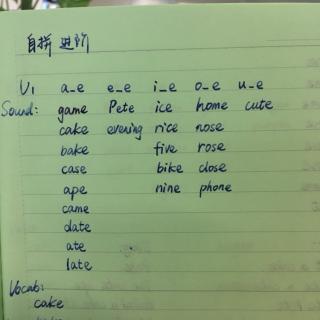 自拼 进阶
U1 a_e e_e i_e o_e u_e
Sound: game Pete ice home cute
cake evening rice nose
bake five rose
case bike close
ape nine phone
came
date
ate
late
Vocab:
cake